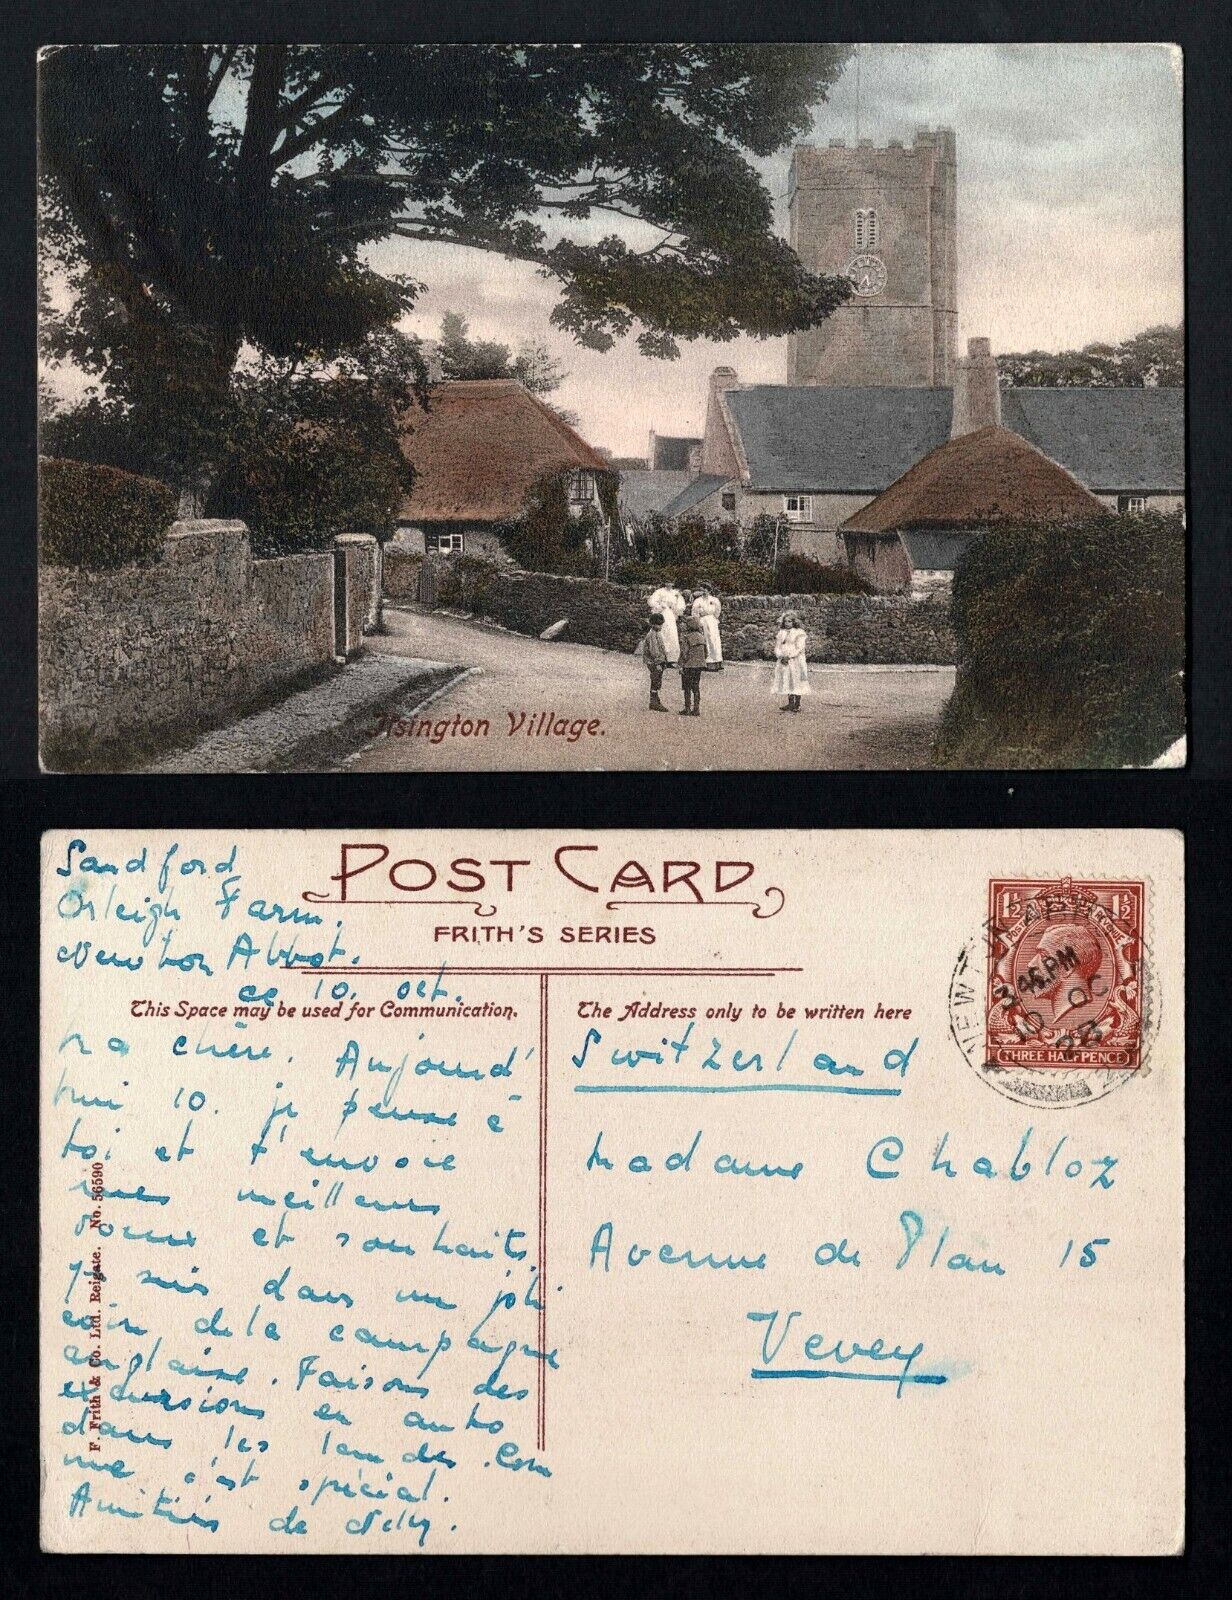 Ilsington Village.
Sandford
Orleigh Farm.
Newton Abbot.
ce 10. oct.
POST CARD
FRITH'S SERIES
This Space may be used for Communication.
The Address only to be written here
Ma chère. Aujourd'
hui 10. je pense à
toi et t'envoie
mes meilleurs
voeux et souhaits.
Je suis dans un joli
coin de la campagne
anglaise. Faisons des
excursions en auto
dans les landes. Com
me c'est spécial.
Amitiés de Nelly.
F. Frith & Co. Ltd. Reigate. No. 56590
Switzerland
Madame Chabloz
Avenue de Plan 15
Vevey
NEWTON ABBOT
3 45 PM
10 OC
POSTAGE REVENUE
1½ 1½
THREE HALFPENCE